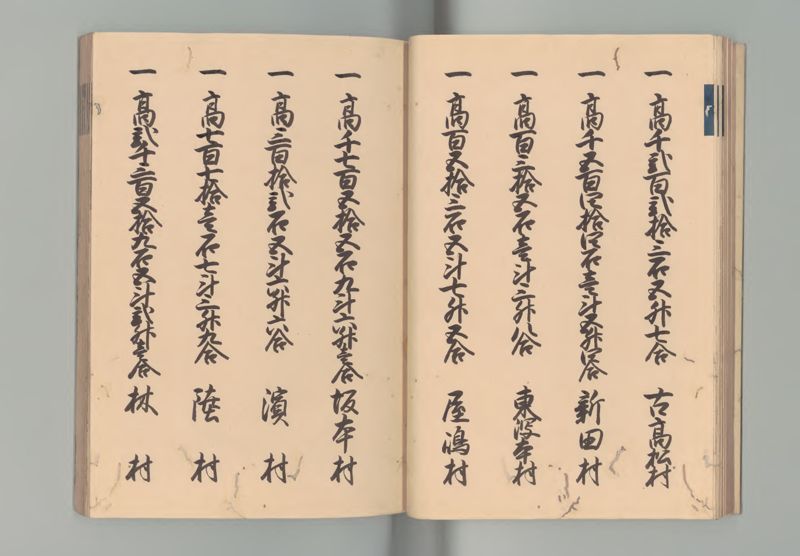 一 高千弐百弐拾三石五升七合 古高松村
一 高千五百四拾四石壱斗五升四合 新田村
一 高百三拾五石壱斗三升八合 東潟本村
一 高百五拾三石五斗七升五合 屋嶋村
一 高千七百五拾五石九斗六升壱合 坂本村
一 高三百拾弐石五斗六升六合 濱 村
一 高七百七拾壱石七斗三升九合 陸 村
一 高弐千三百五拾九石五斗弐升壱合 林 村